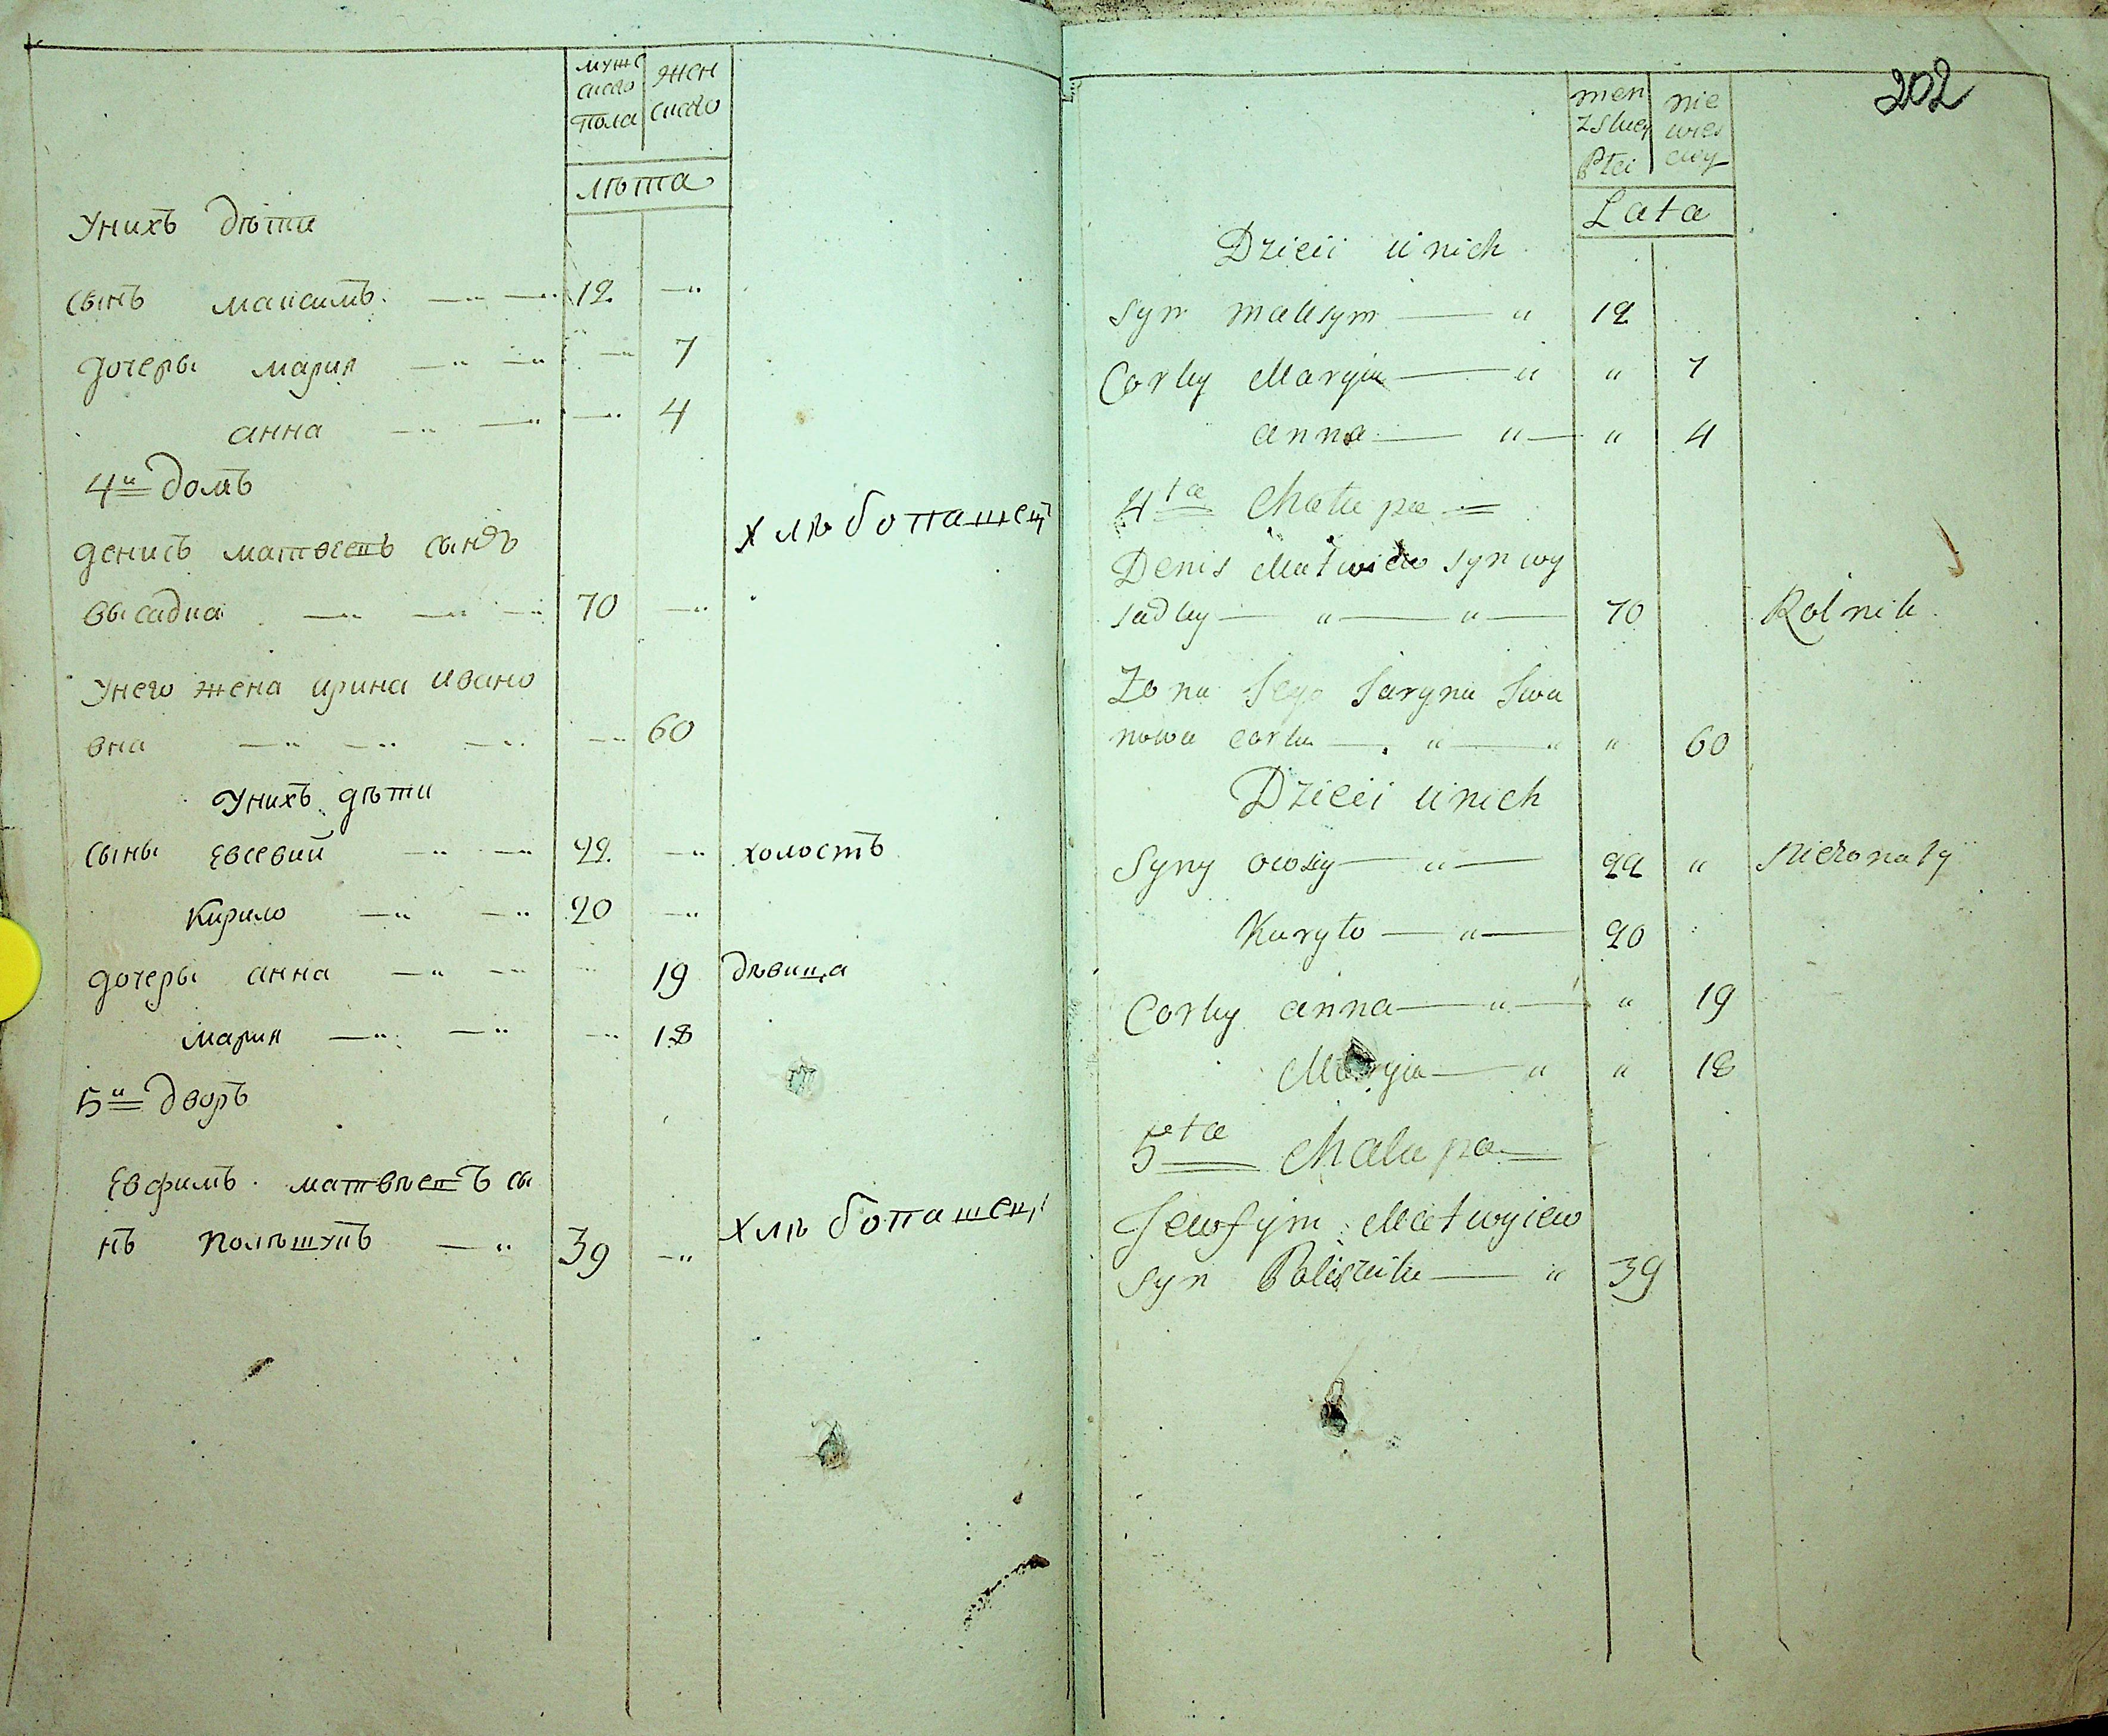 мужс жен
скаго скаго
пола
лѣта
Унихъ дѣти
сынъ максимъ 12
дочеры мария 7
анна 4
4й домъ
хлѣбопашец
денисъ матвеевъ сынъ
высадка 70
Унего жена ирина ивано
вна 60
Унихъ дѣти
сыны Евсевий 22 холостъ
Кирило 20
дочеры анна 19 дѣвица
мария 18
5й дворъ
Евфимъ матвѣевъ сы
нъ полѣшукъ 39 хлѣбопашец
202
men nie
zskiey wies
Płci ciy
Lata
Dzieci u nich
Syn maksym " 12
Corky Maryia " " 7
anna " " 4
4ta Chałupa
Denis Matwiew Syn wy
sadky " " 70 Rolnik
Zona Jego Jaryna Iwa
nowa corka " " " 60
Dzieci u nich
Syny owsiy " 22 " Niezonaty
Kuryło " 20
Corky anna " " 19
Maryia " " 18
5ta Chalupa
Jewfym Matwyiew
Syn Poliszuk " 39